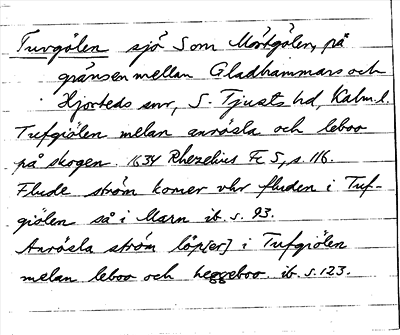 Tuvgölen sjö S om Mörkgölen, på
gränsen mellan Gladhammars och
Hjorteds snr, S. Tjusts hd, Kalm. l.
Tufgiölen melan anrösla och leboo
på skogen. 1634 Rhezelius Fc 5, s. 116.
Flude ström komer vhr fluden i Tuf-
giölen så i Marn ib. s. 93.
Anrösla ström löp[er] i Tufgiölen
melan leboo och heggeboo. ib. s. 123.